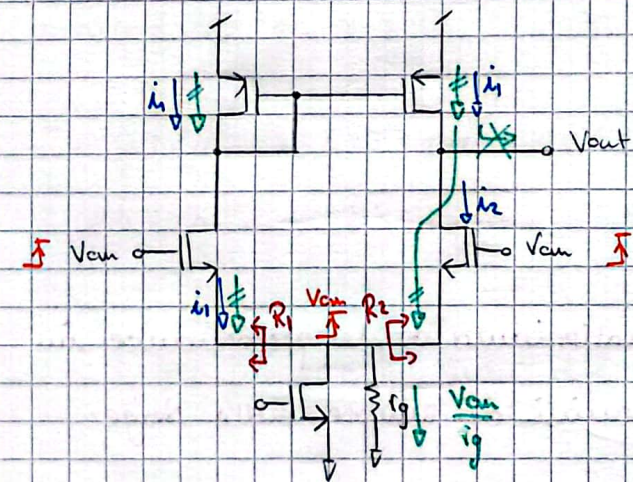 i1 i1
Vout
i2
Vcm Vcm
i1 R1 Vcm R2
rg Vcm
ig